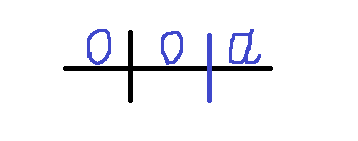 0 0 a